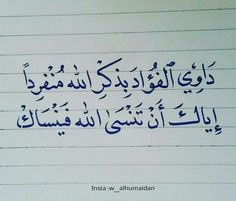 دَاوِي ٱلفُؤَادَ بِذكرِ الله مُنْفَرِداً
إِياكَ أَنْ تَنْسَىٰ الله فَيَنْسَاكْ
Insta :w_alhumaidan